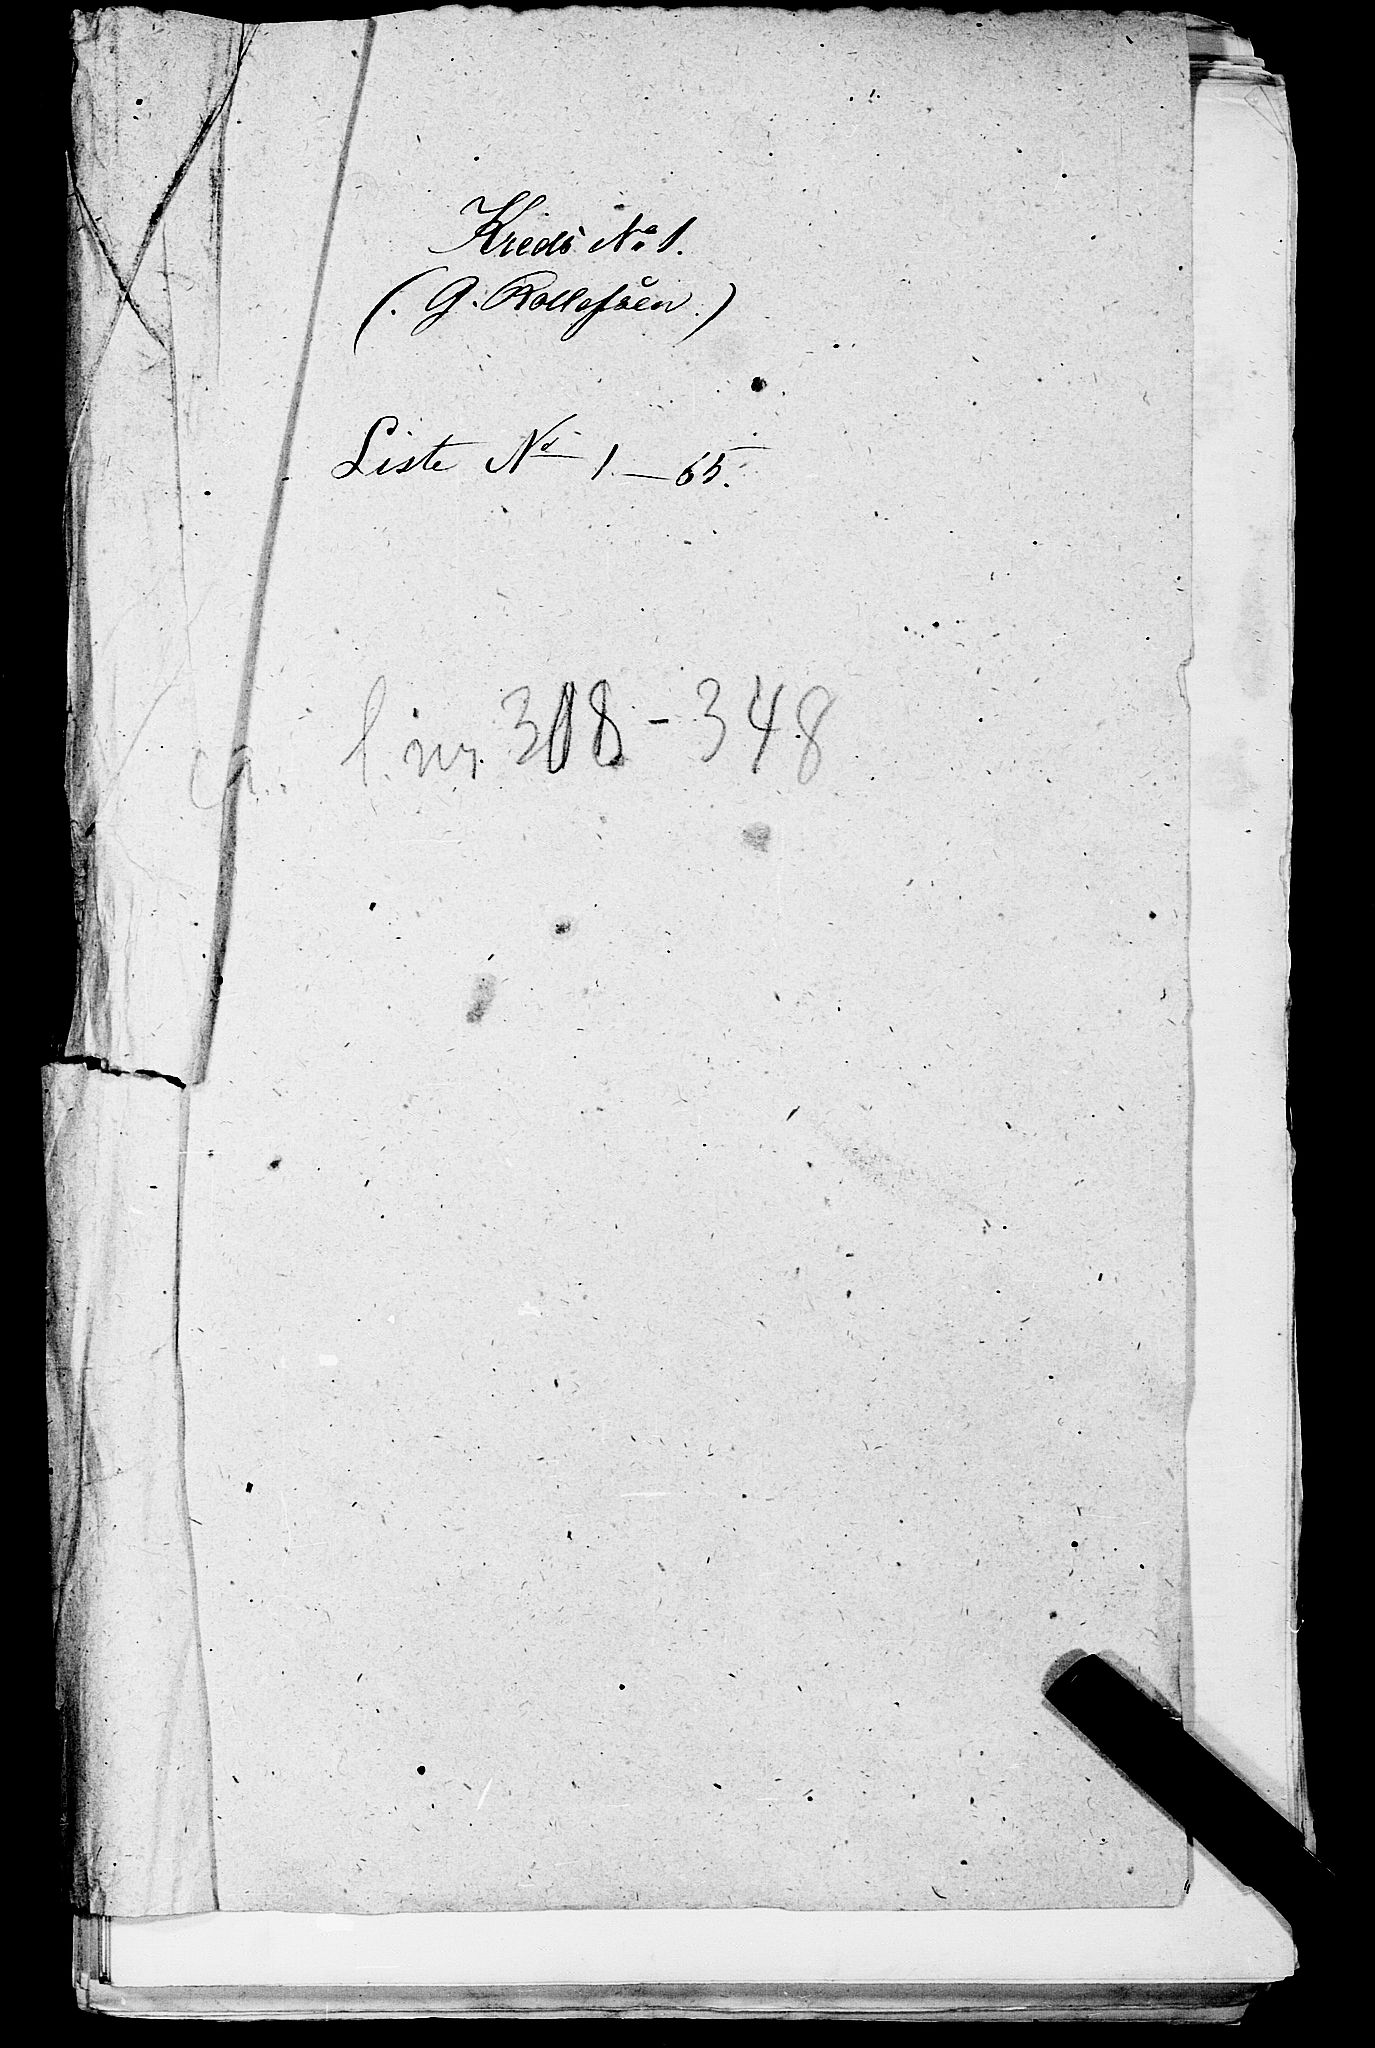 Kreds No 1.
(. G. Rollefsen.)
Liste No 1 — 65.
ca. l. nr. 308 - 348